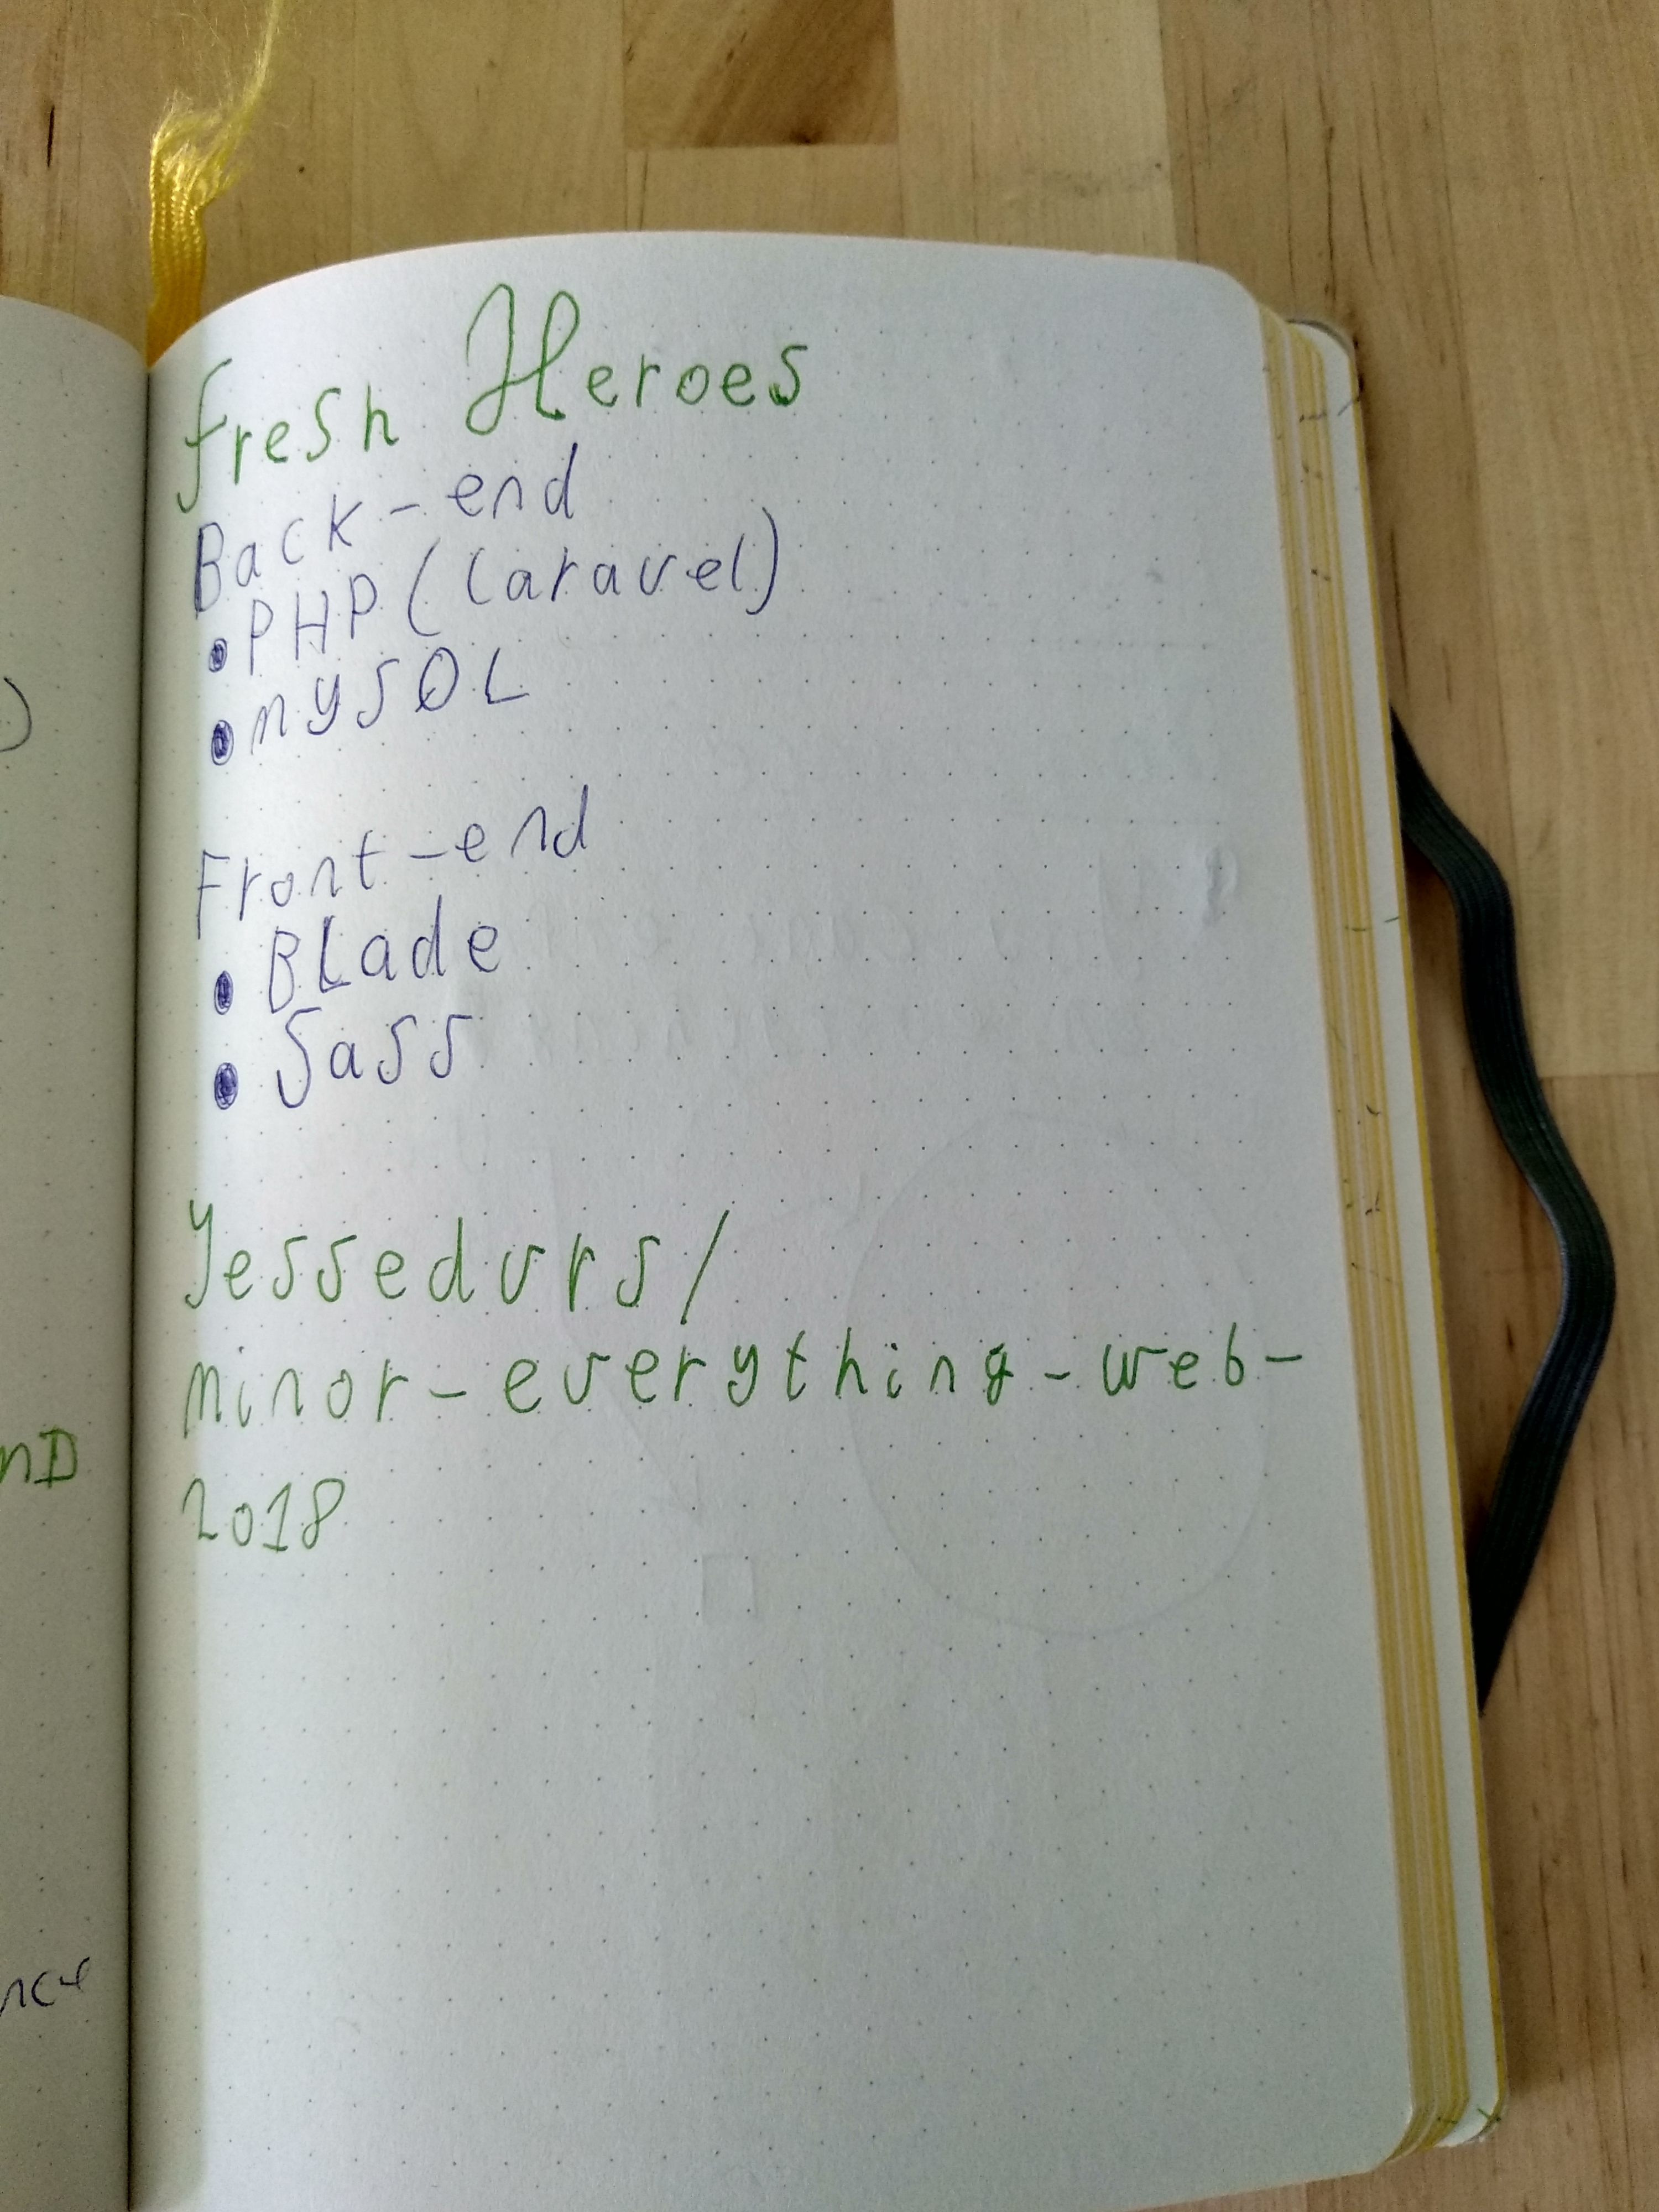 fresh Heroes
Back-end
• PHP (Laravel)
• mySQL
Front-end
• BLade
• Sass
Jessedvrs/
minor-everything-web-
2018
nD
nce